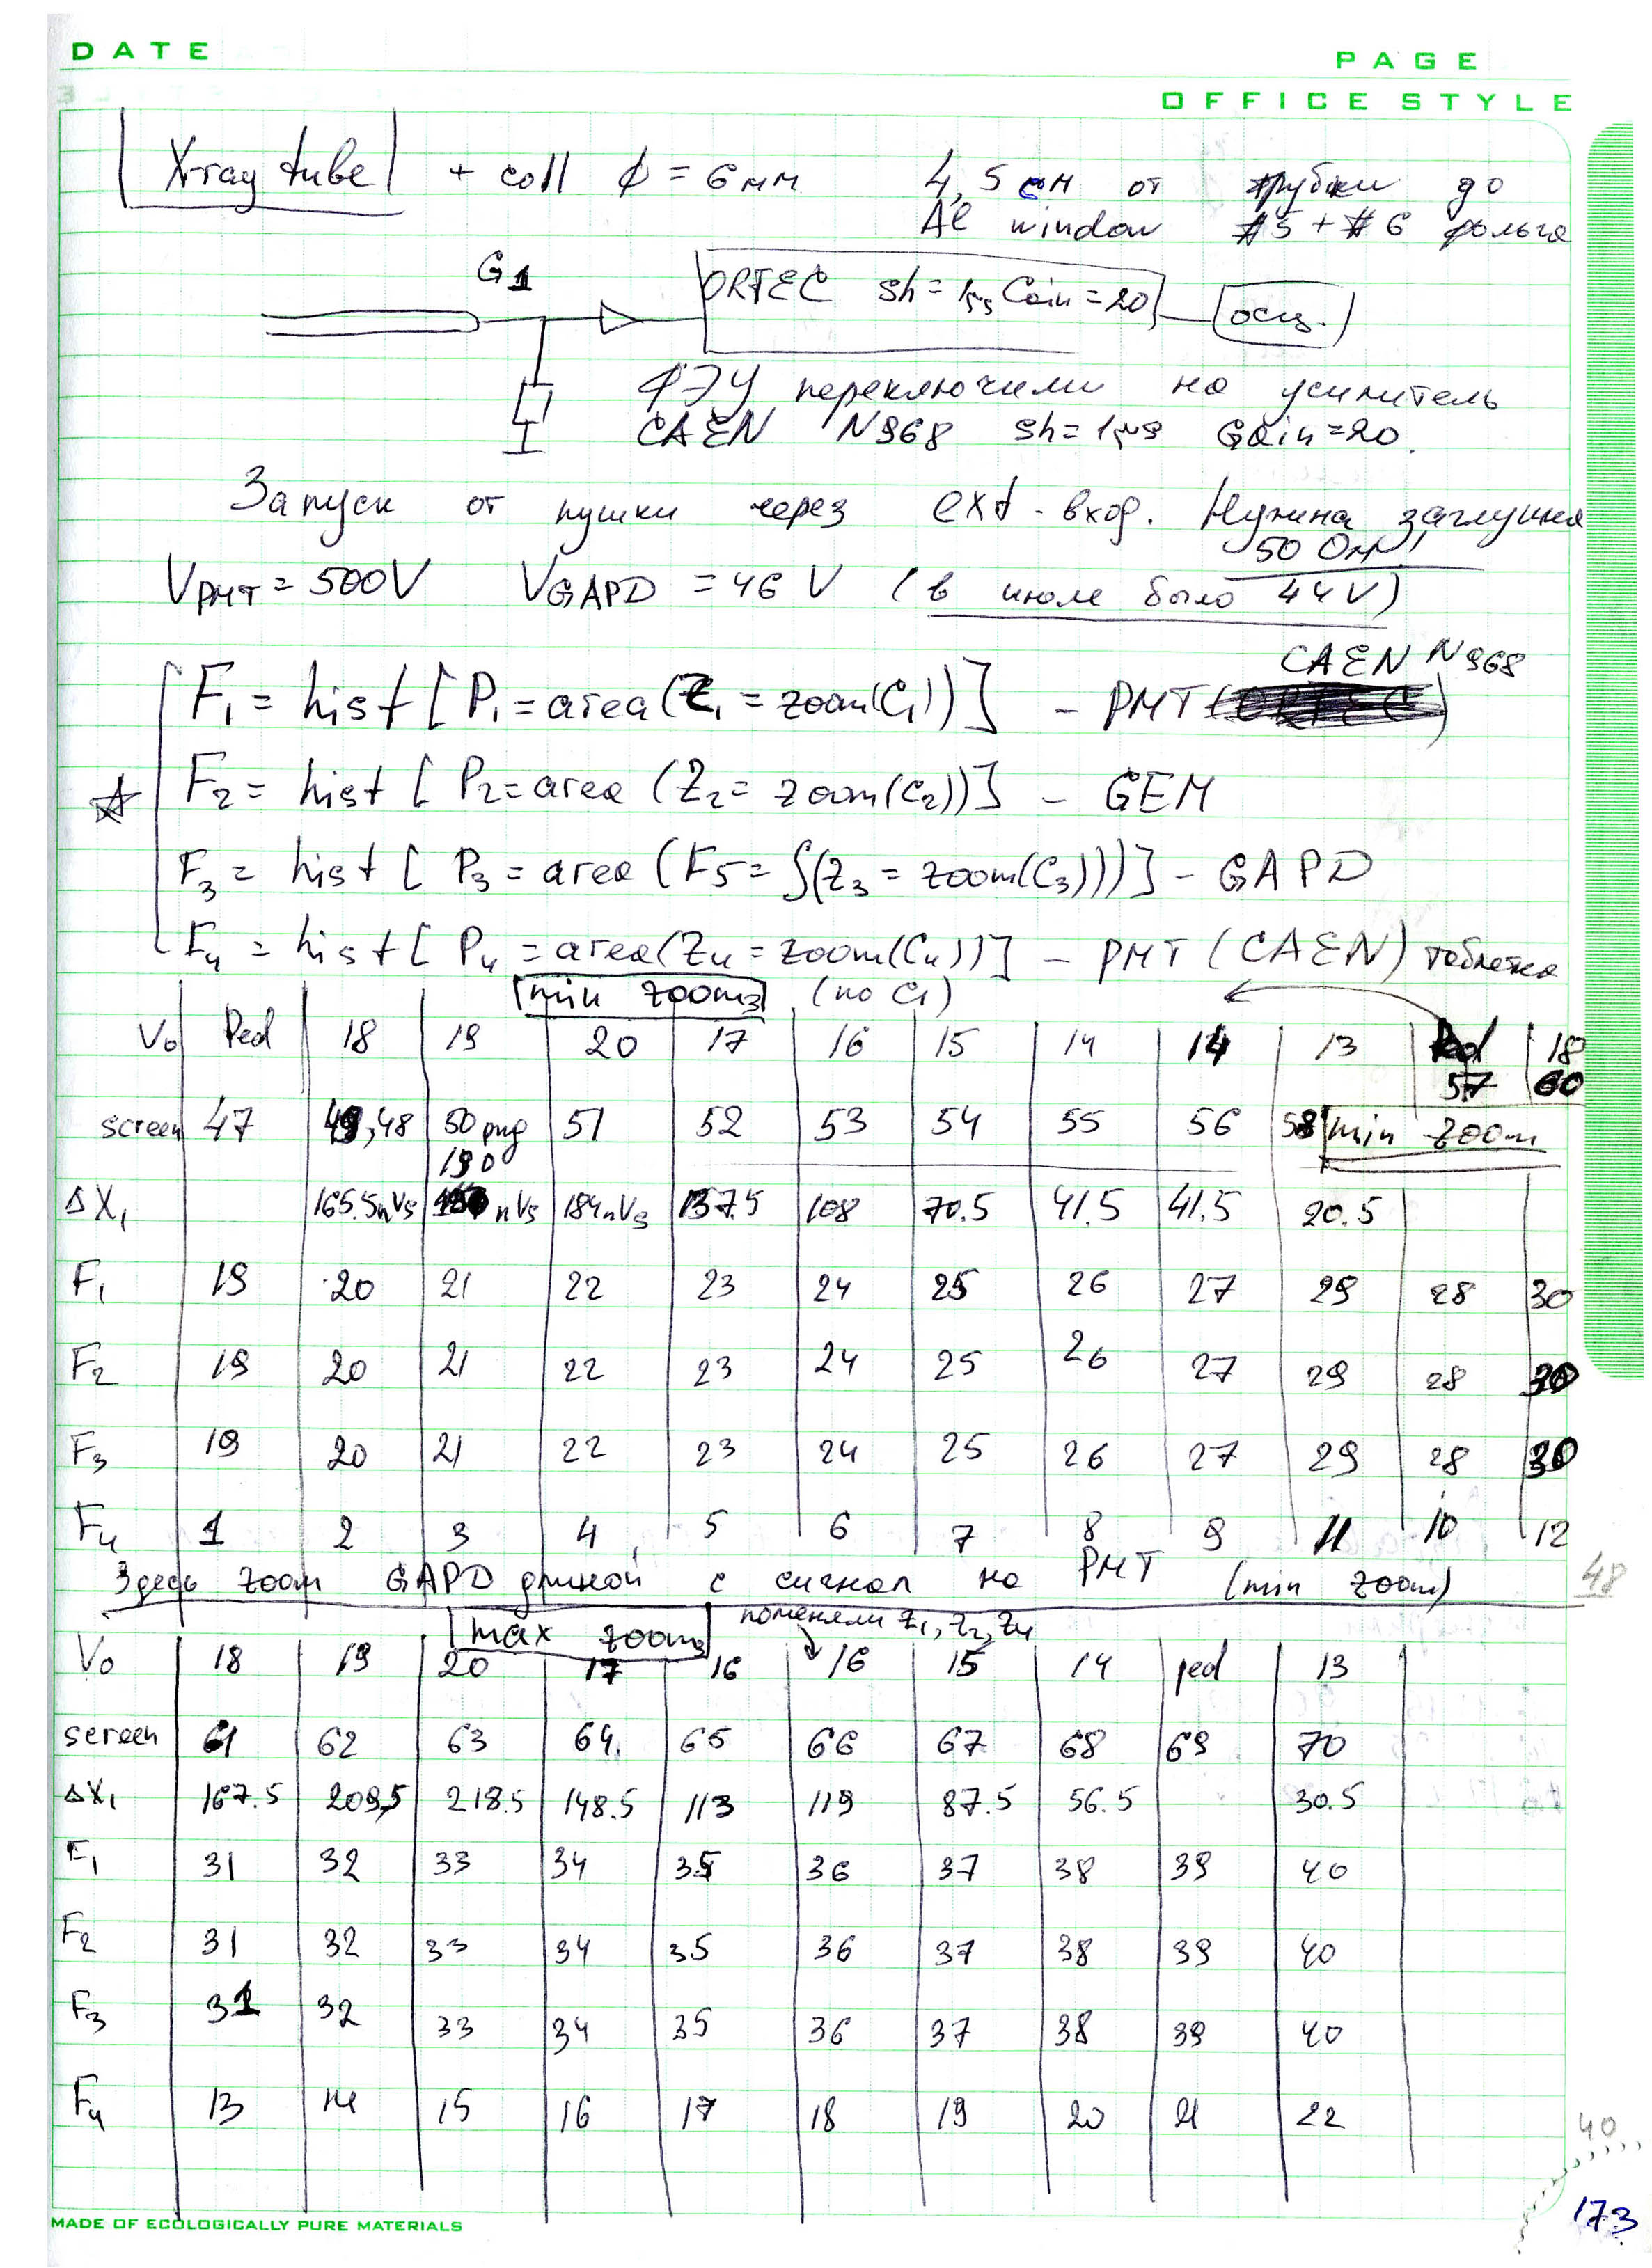 DATE
PAGE
OFFICE STYLE
X-ray tube + coll ϕ = 6мм 4,5 см от трубки до
Al window #5 + #6 фольга
G1
ORTEC sh = 1μs Gain = 20
осц.
ФЭУ переключили на усилитель
CAEN N968 sh = 1μs Gain = 20.
Запуск от пушки через ext-вход. Нужна заглушка
50 Ом!
VPMT = 500V VGAPD = 46 V (в июле было 44V)
CAEN N968
F1 = hist [P1 = area(Z1 = zoom(C1))] – PMT
F2 = hist [P2 = area (Z2 = zoom(C2))] – GEM
F3 = hist [P3 = area (F5 = ∫(Z3 = zoom(C3)))] – GAPD
F4 = hist [P4 = area(Z4 = zoom(C4))] – PMT (CAEN) таблетка
min zoom3 (по C1)
V0 Ped 18 19 20 17 16 15 14 14 13 Ped 18
57 60
screen 47 49,48 50 png 51 52 53 54 55 56 58 min zoom
190
ΔX1 165.5nVs nVs 184nVs 137.5 108 70.5 41.5 41.5 20.5
F1 19 20 21 22 23 24 25 26 27 29 28 30
F2 19 20 21 22 23 24 25 26 27 29 28 30
F3 19 20 21 22 23 24 25 26 27 29 28 30
F4 1 2 3 4 5 6 7 8 9 11 10 12
Здесь zoom GAPD длиной с сигнал на PMT (min zoom)
48
max zoom3 поменяли Z1, Z2, Z4
V0 18 19 20 17 16 16 15 14 ped 13
screen 61 62 63 64 65 66 67 68 69 70
ΔX1 167.5 209,5 218.5 148.5 113 119 87.5 56.5 30.5
F1 31 32 33 34 35 36 37 38 39 40
F2 31 32 33 34 35 36 37 38 39 40
F3 31 32 33 34 35 36 37 38 39 40
F4 13 14 15 16 17 18 19 20 21 22
40
173
MADE OF ECOLOGICALLY PURE MATERIALS